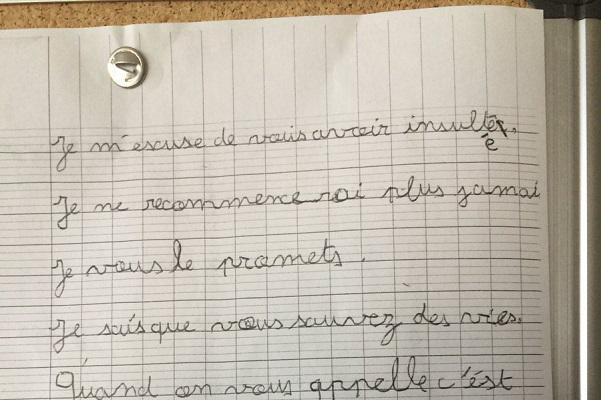 Je m'escuse de vous avoir insulter.
é
Je ne recommencerai plus jamai
Je vous le promets.
Je sais que vous sauvez des vies.
Quand on vous appelle c'ést